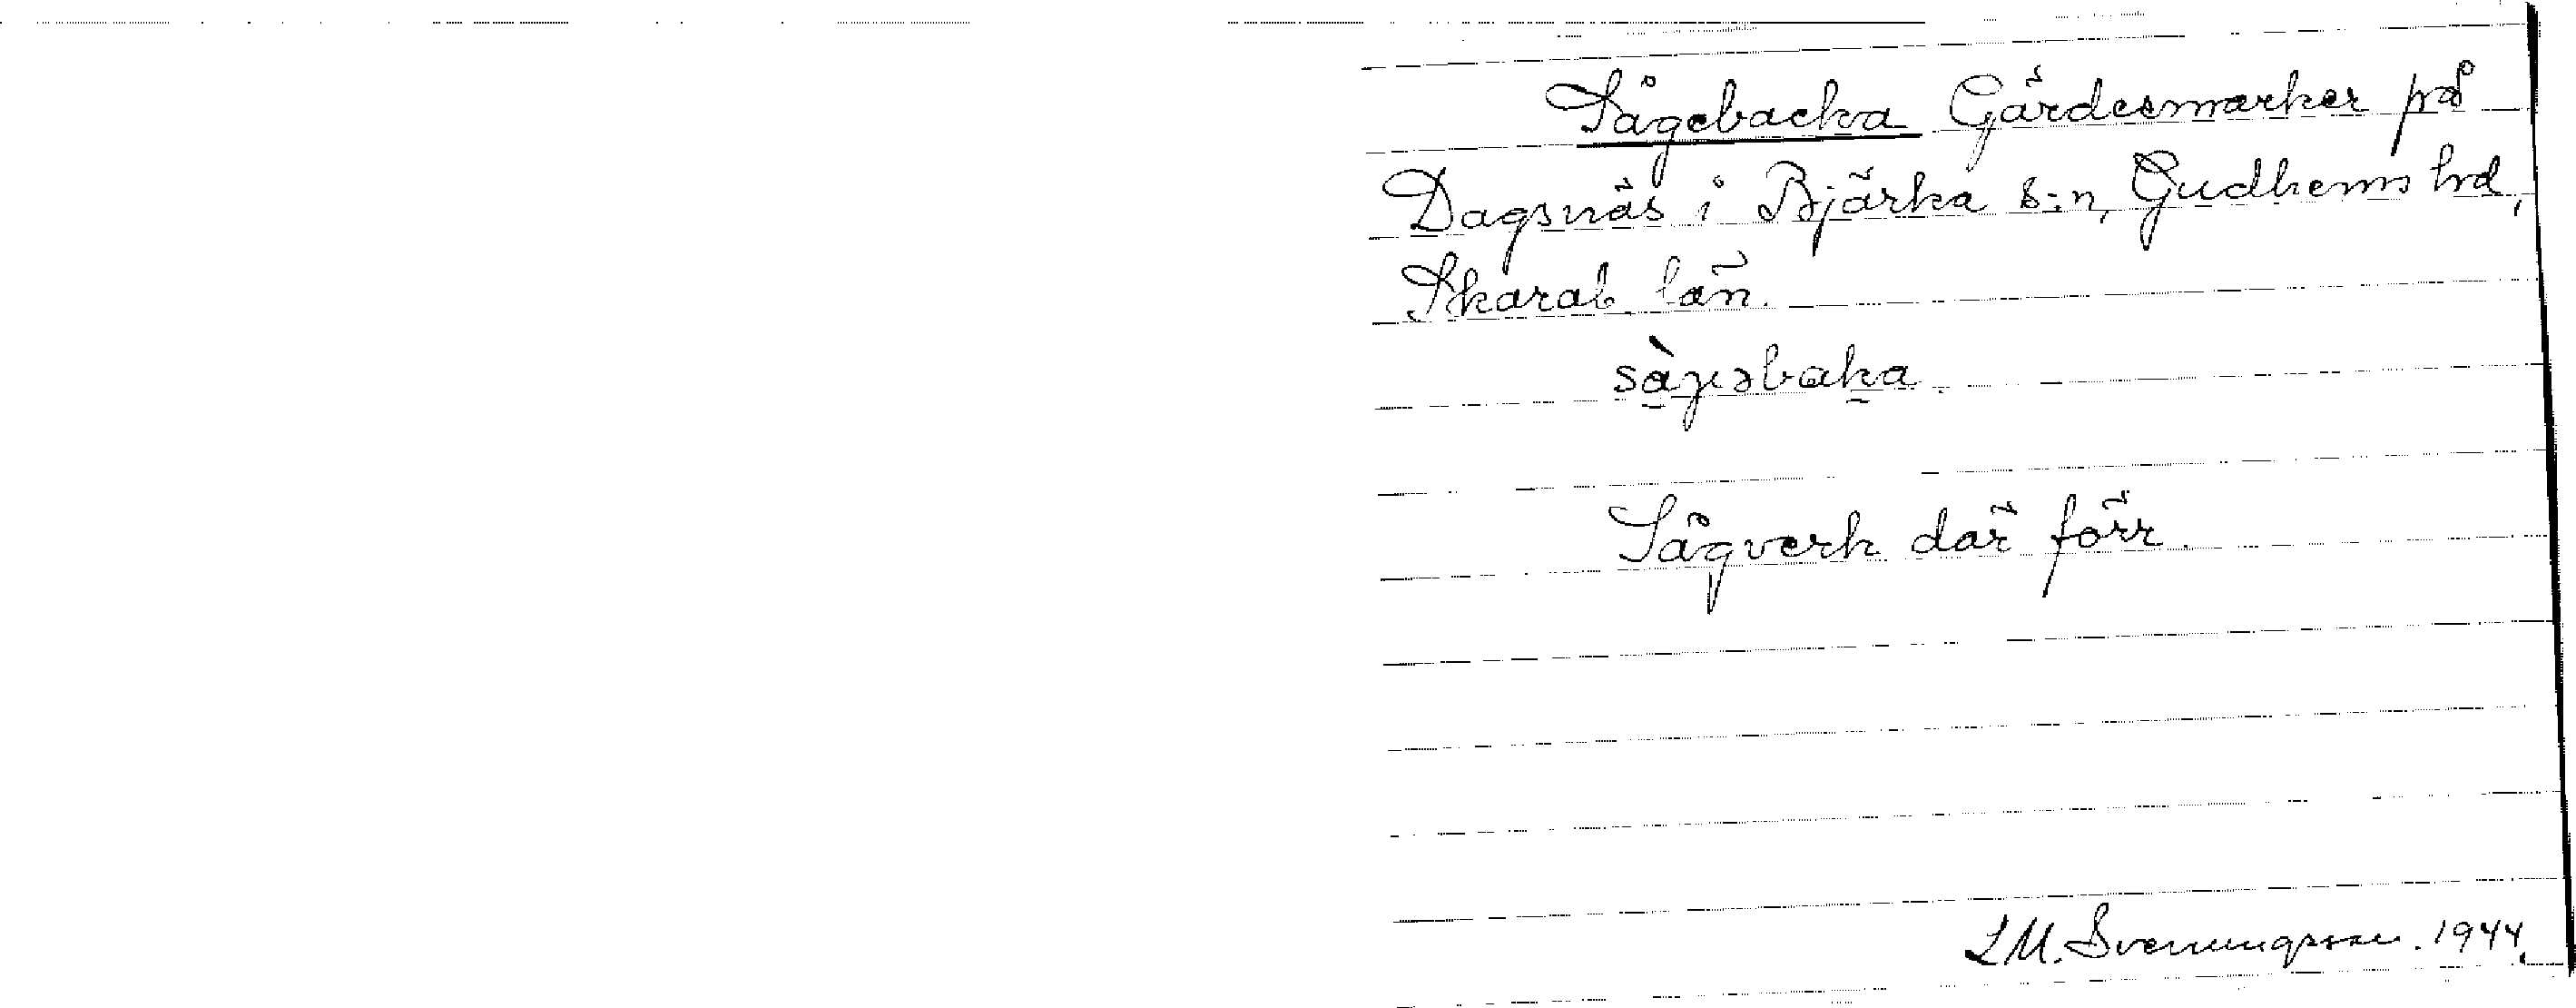 Sågebacka Gärdesmarker på
Dagsnäs i Bjärka s:n, Gudhems hd,
Skarab. län.
sàgəbaka
Sågverk där förr.
LM. Svenungsson. 1944.